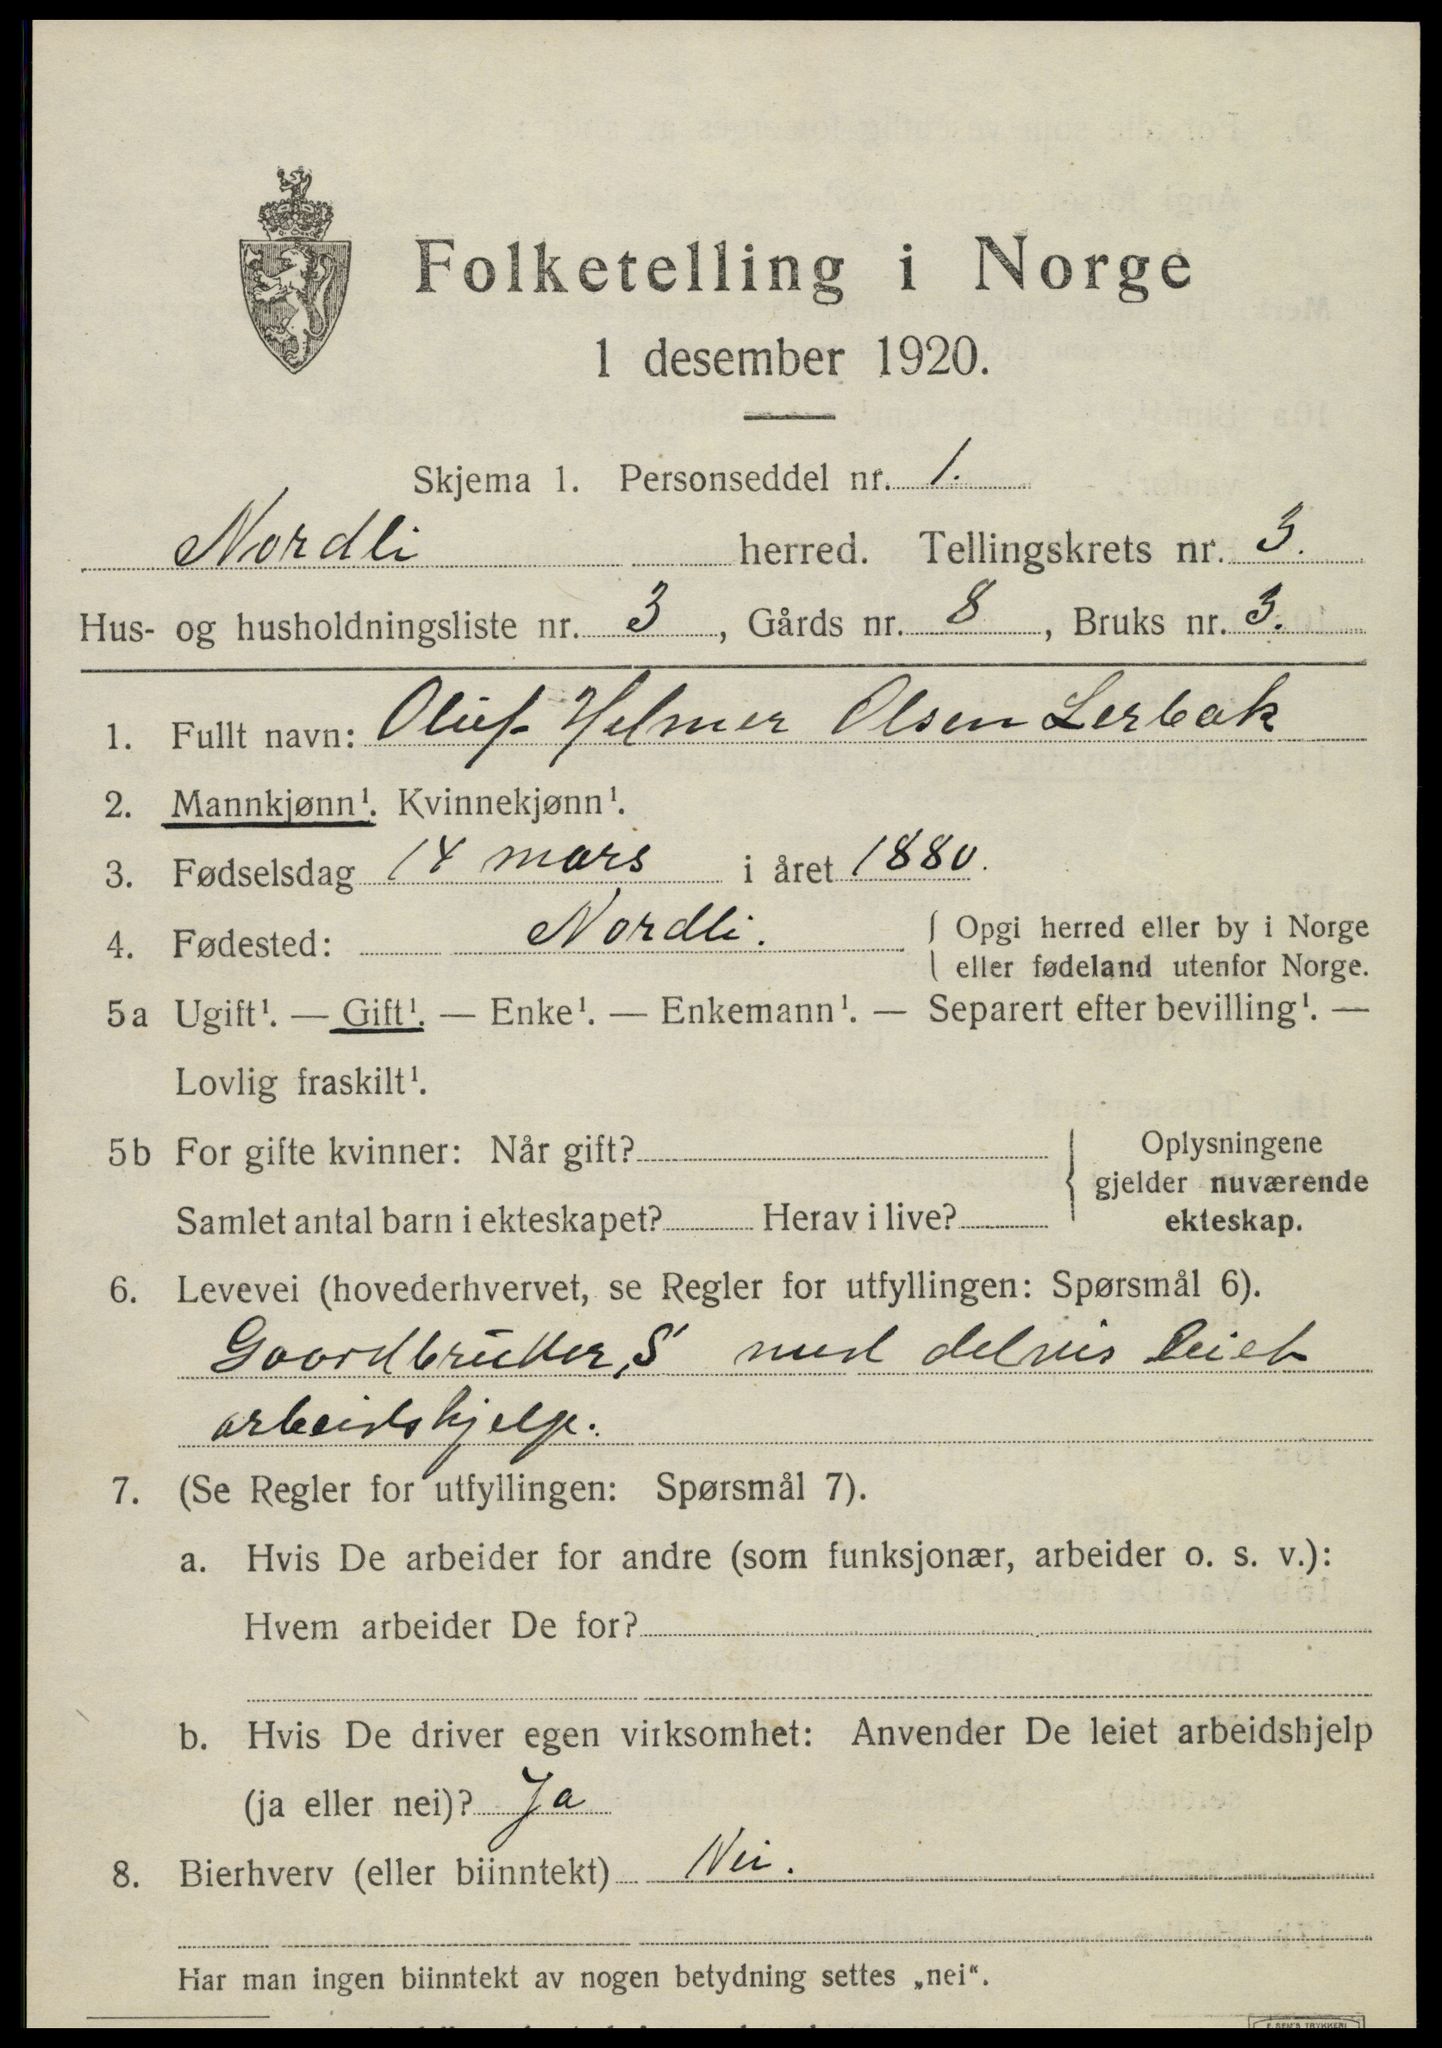 Folketelling i Norge
1 desember 1920.
Skjema 1. Personseddel nr. 1.
Nordli herred. Tellingskrets nr. 3.
Hus- og husholdningsliste nr. 3, Gårds nr. 8, Bruks nr. 3.
1. Fullt navn: Oluf Helmer Olsen Lerbak
2. Mannkjønn¹. Kvinnekjønn¹.
3. Fødselsdag 14 mars i året 1880.
4. Fødested: Nordli. { Opgi herred eller by i Norge
eller fødeland utenfor Norge.
5a Ugift¹. — Gift¹. — Enke¹. — Enkemann¹. — Separert efter bevilling¹. —
Lovlig fraskilt¹.
5b For gifte kvinner: Når gift? { Oplysningene
gjelder nuværende
Samlet antal barn i ekteskapet? Herav i live? ekteskap.
6. Levevei (hovederhvervet, se Regler for utfyllingen: Spørsmål 6).
Gaardbruker, S med delvis leiet
arbeidshjelp.
7. (Se Regler for utfyllingen: Spørsmål 7).
a. Hvis De arbeider for andre (som funksjonær, arbeider o. s. v.):
Hvem arbeider De for?
b. Hvis De driver egen virksomhet: Anvender De leiet arbeidshjelp
(ja eller nei)? Ja
8. Bierhverv (eller biinntekt) Nei.
Har man ingen biinntekt av nogen betydning settes „nei“.